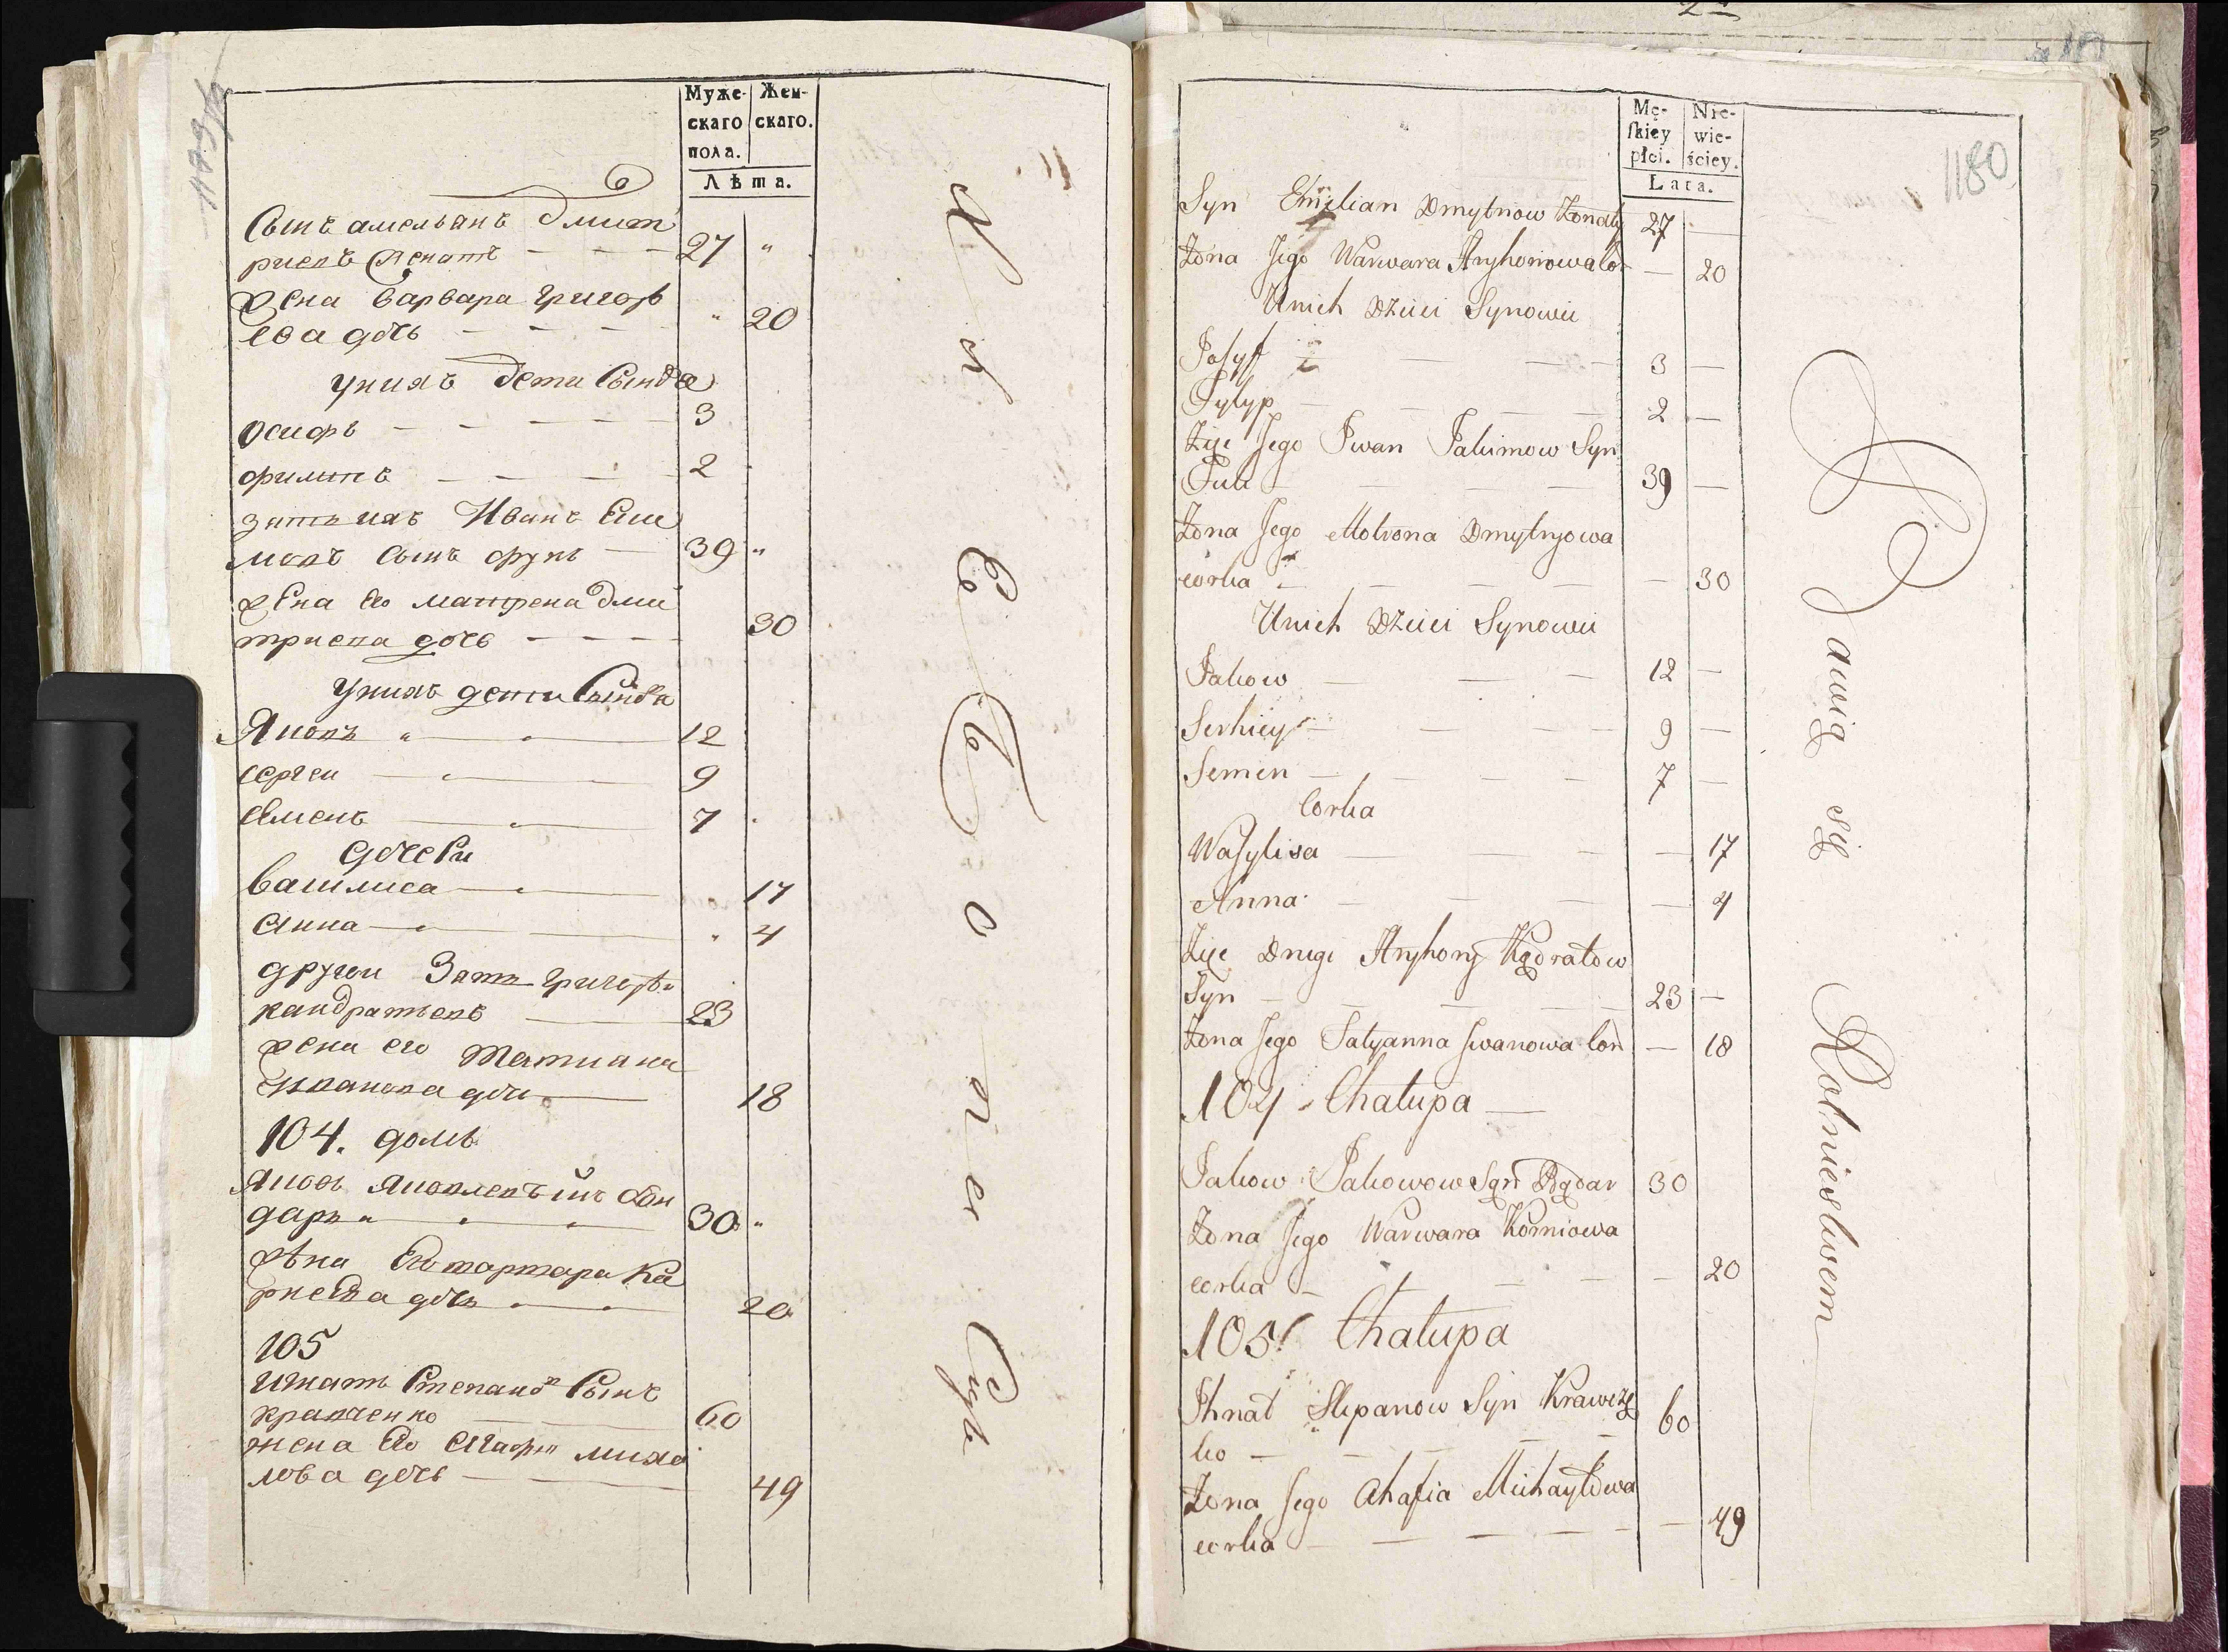 Муже-
скаго
пола.
Жен-
скаго.
Лѣта.
Сынъ амельянъ дмит
риевъ женатъ 27
жена варвара григорь
ева дочь 20
унихъ дети Сыновя
осифъ 3
филипъ 2
зять ихъ Иванъ Еки
мовъ Сынъ фукъ 39
жена его матрена дми
триева дочь 30
унихъ дети Сыновя
Яковъ 12
сергеи 9
семенъ 7
дочери
василиса 17
анна 4
другои Зять григореи
кандратьевъ 23
жена его татиана
Иванова дочь 18
104. домъ
Яковъ Яковлевъ бон
даръ 30
жена Его варвара Ка
рнеева дочь 20
105
игнатъ Степановъ Сынъ
кравченко 60
жена Его агафия михаи
лова дочь 49
1180
Mę-
skiey
płci.
Nie-
wie-
ściey.
Lata.
Syn Emilian Dmytrow Żonaty 27
Żona Jego Warwara Hryhorowa Cór 20
Unich Dzieci Synowie
Josyf 3
Pylyp 2
Zięc Jego Iwan Jakimow Syn
Fuk 39
Żona Jego Motrona Dmytryowa
corka 30
Unich Dzieci Synowie
Jakow 12
Serhiey 9
Semen 7
Corka
Wasylisa 17
Anna 4
Zięc Drugi Hryhory Kądratow
Syn 23
Żona Jego Tatyanna Iwanowa Cor 18
104 Chałupa
Jakow Jakowow Syn Bądar 30
Żona Jego Warwara Korniowa
corka 20
105. Chałupa
Ihnat Stepanow Syn Krawczę
ko 60
Żona Jego Ahafia Michayłowa
corka 49
Bawią się Rolnictwem